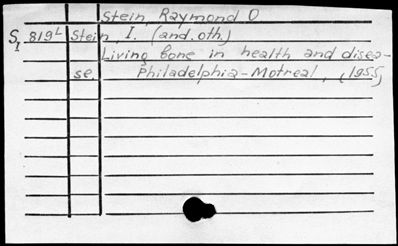 Stein, Raymond O
S 819L Stein, I. (and.oth)
I
Living bone in health and disea-
se. Philadelphia-Motreal, (1955)